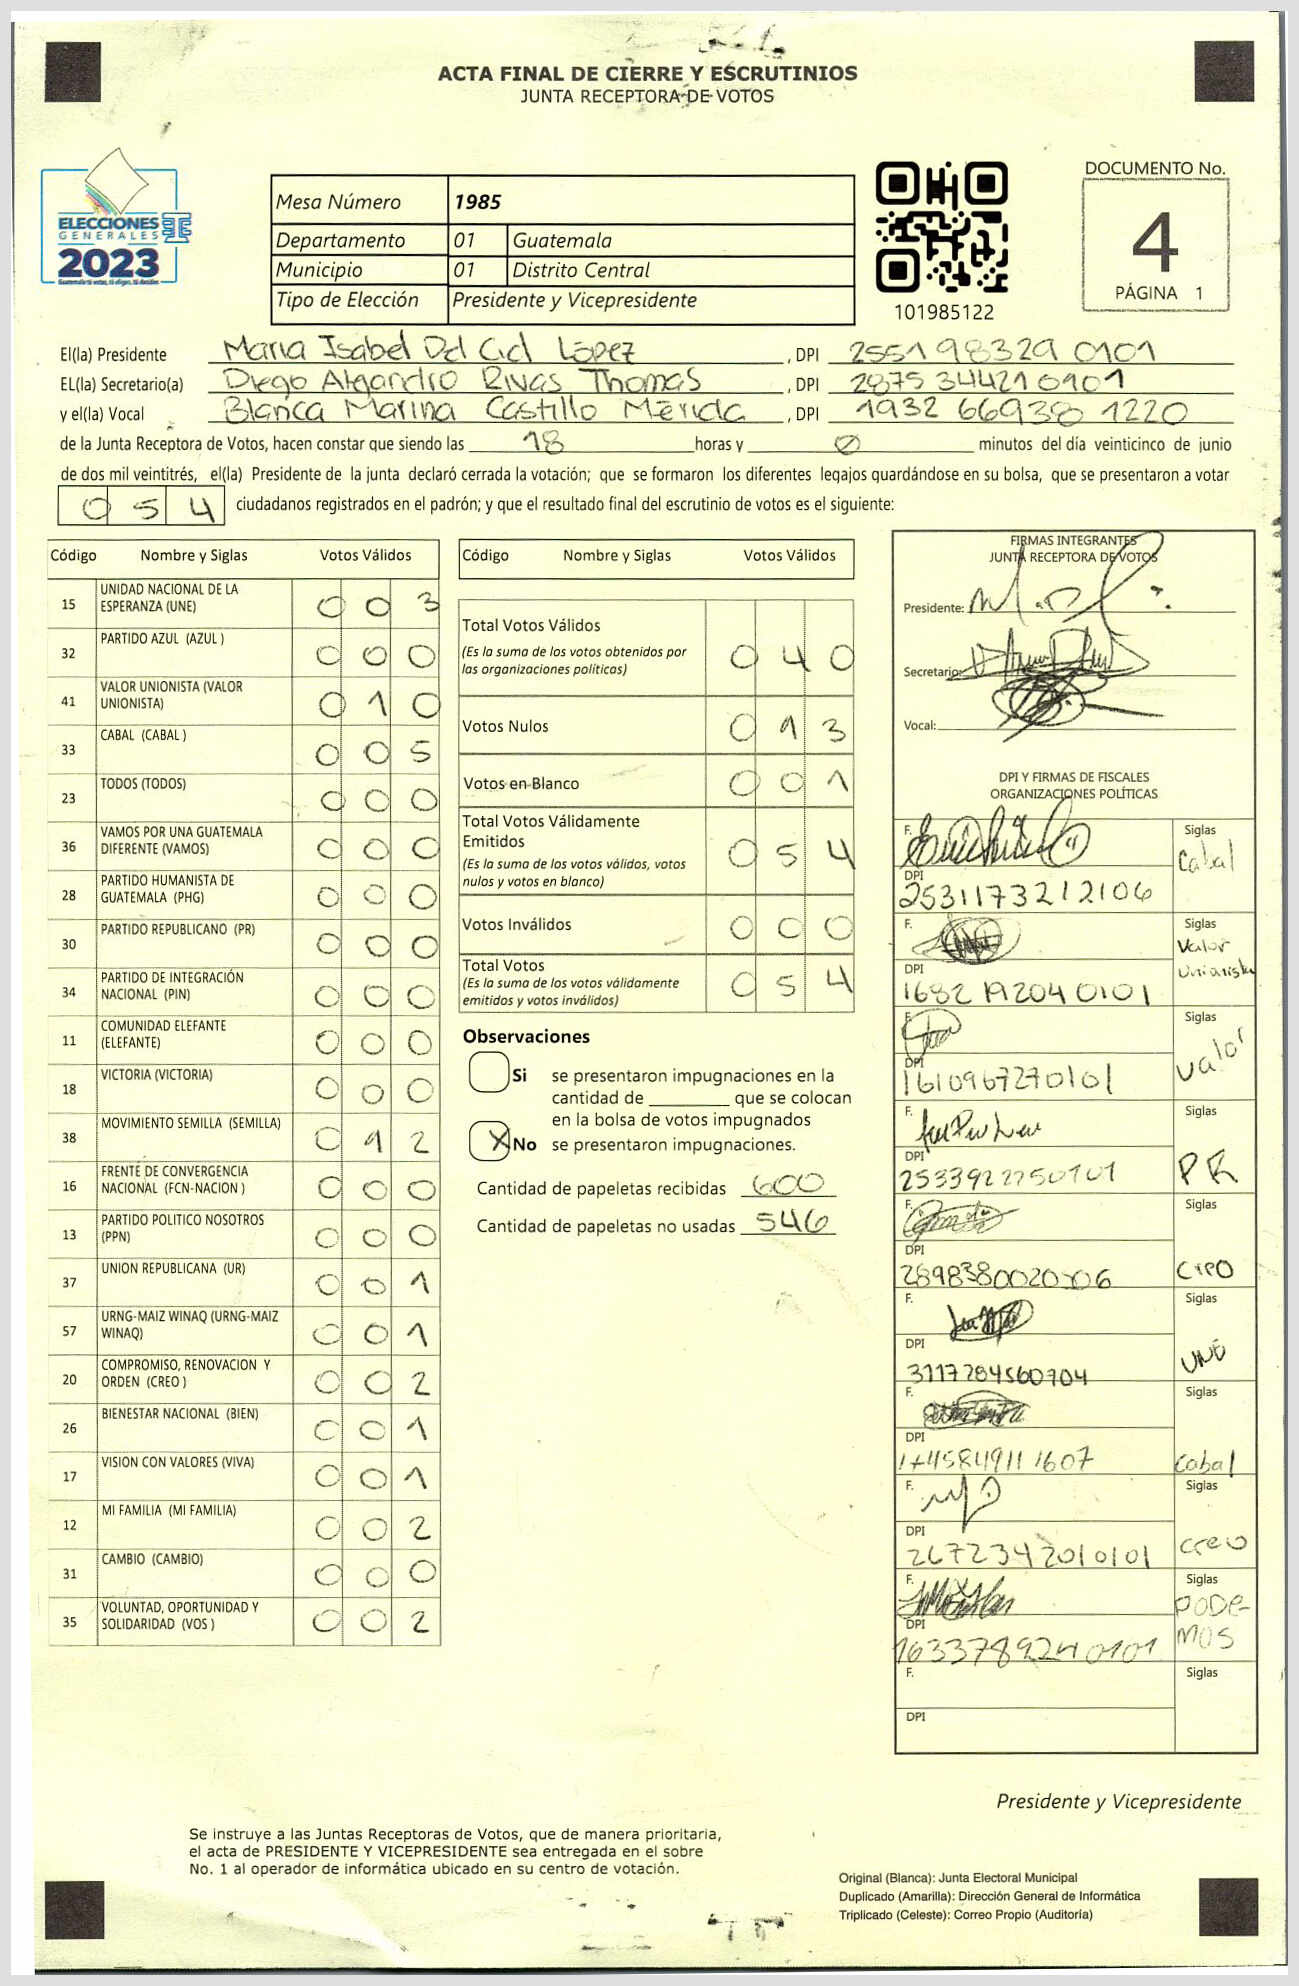 ACTA FINAL DE CIERRE Y ESCRUTINIOS
JUNTA RECEPTORA DE VOTOS
ELECCIONES
GENERALES
2023
Mesa Número 1985
Departamento 01 Guatemala
Municipio 01 Distrito Central
Tipo de Elección Presidente y Vicepresidente
101985122
DOCUMENTO No.
4
PÁGINA 1
El(la) Presidente Maria Isabel Del Cid López, DPI 2551 98329 0101
EL(la) Secretario(a) Diego Alejandro Rivas Thomas, DPI 2875 34421 0101
y el(la) Vocal Blanca Marina Castillo Mérida, DPI 1932 66938 1220
de la Junta Receptora de Votos, hacen constar que siendo las 18 horas y 0 minutos del día veinticinco de junio
de dos mil veintitrés, el(la) Presidente de la junta declaró cerrada la votación; que se formaron los diferentes legajos quardándose en su bolsa, que se presentaron a votar
0 5 4 ciudadanos registrados en el padrón; y que el resultado final del escrutinio de votos es el siguiente:
Código Nombre y Siglas Votos Válidos
15 UNIDAD NACIONAL DE LA ESPERANZA (UNE) 0 0 3
32 PARTIDO AZUL (AZUL ) 0 0 0
41 VALOR UNIONISTA (VALOR UNIONISTA) 0 1 0
33 CABAL (CABAL ) 0 0 5
23 TODOS (TODOS) 0 0 0
36 VAMOS POR UNA GUATEMALA DIFERENTE (VAMOS) 0 0 0
28 PARTIDO HUMANISTA DE GUATEMALA (PHG) 0 0 0
30 PARTIDO REPUBLICANO (PR) 0 0 0
34 PARTIDO DE INTEGRACIÓN NACIONAL (PIN) 0 0 0
11 COMUNIDAD ELEFANTE (ELEFANTE) 0 0 0
18 VICTORIA (VICTORIA) 0 0 0
38 MOVIMIENTO SEMILLA (SEMILLA) 0 1 2
16 FRENTE DE CONVERGENCIA NACIONAL (FCN-NACION ) 0 0 0
13 PARTIDO POLITICO NOSOTROS (PPN) 0 0 0
37 UNION REPUBLICANA (UR) 0 0 1
57 URNG-MAIZ WINAQ (URNG-MAIZ WINAQ) 0 0 1
20 COMPROMISO, RENOVACION Y ORDEN (CREO ) 0 0 2
26 BIENESTAR NACIONAL (BIEN) 0 0 1
17 VISION CON VALORES (VIVA) 0 0 1
12 MI FAMILIA (MI FAMILIA) 0 0 2
31 CAMBIO (CAMBIO) 0 0 0
35 VOLUNTAD, OPORTUNIDAD Y SOLIDARIDAD (VOS ) 0 0 2
Código Nombre y Siglas Votos Válidos
Total Votos Válidos 0 4 0
(Es la suma de los votos obtenidos por
las organizaciones políticas)
Votos Nulos 0 1 3
Votos en Blanco 0 0 1
Total Votos Válidamente
Emitidos 0 5 4
(Es la suma de los votos válidos, votos
nulos y votos en blanco)
Votos Inválidos 0 0 0
Total Votos 0 5 4
(Es la suma de los votos válidamente
emitidos y votos inválidos)
Observaciones
Si se presentaron impugnaciones en la
cantidad de ________ que se colocan
en la bolsa de votos impugnados
X No se presentaron impugnaciones.
Cantidad de papeletas recibidas 600
Cantidad de papeletas no usadas 546
FIRMAS INTEGRANTES
JUNTA RECEPTORA DE VOTOS
Presidente:
Secretario:
Vocal:
DPI Y FIRMAS DE FISCALES
ORGANIZACIONES POLÍTICAS
F. Siglas Cabal
DPI 2531173212106
F. Siglas Valor Unionista
DPI 1682 19204 0101
F. Siglas Valor
DPI 1610967270101
F. Siglas PR
DPI 2533922750101
F. Siglas Creo
DPI
F. Siglas UNE
DPI 3117284560704
F. Siglas Cabal
DPI
F. Siglas Creo
DPI 2672342010101
F. Siglas PODEMOS
DPI 1633789240101
F. Siglas
DPI
Presidente y Vicepresidente
Se instruye a las Juntas Receptoras de Votos, que de manera prioritaria,
el acta de PRESIDENTE Y VICEPRESIDENTE sea entregada en el sobre
No. 1 al operador de informática ubicado en su centro de votación.
Original (Blanca): Junta Electoral Municipal
Duplicado (Amarilla): Dirección General de Informática
Triplicado (Celeste): Correo Propio (Auditoría)